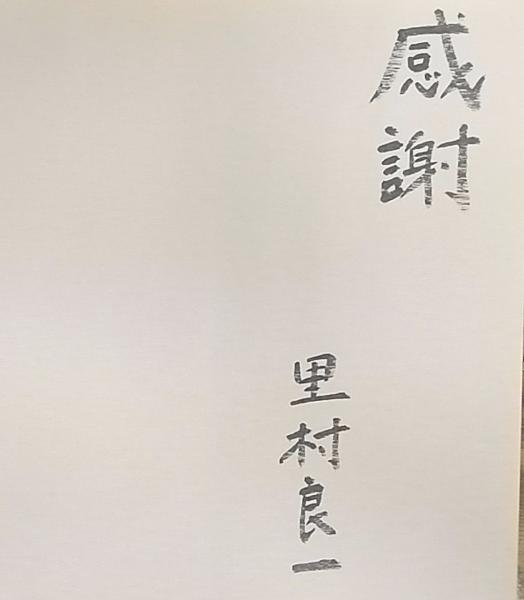 感謝
里村良一